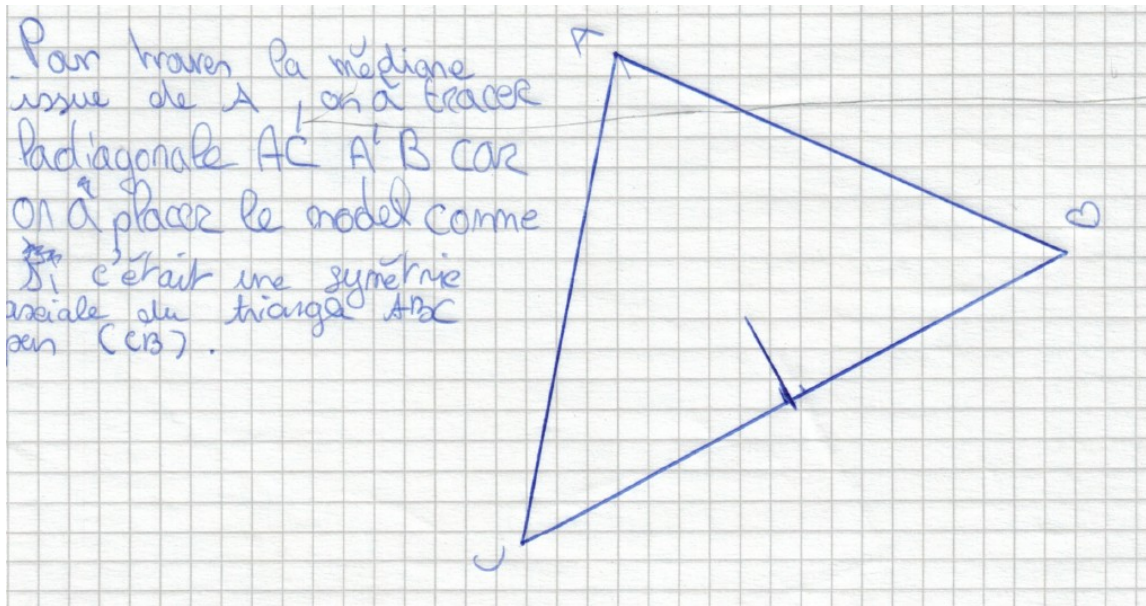 Pour trouver la médiane
issue de A, on à tracer
la diagonale AC A'B car
on à placer le model comme
si c'était une symétrie
axiale du triangle ABC
par (CB).
A
B
C